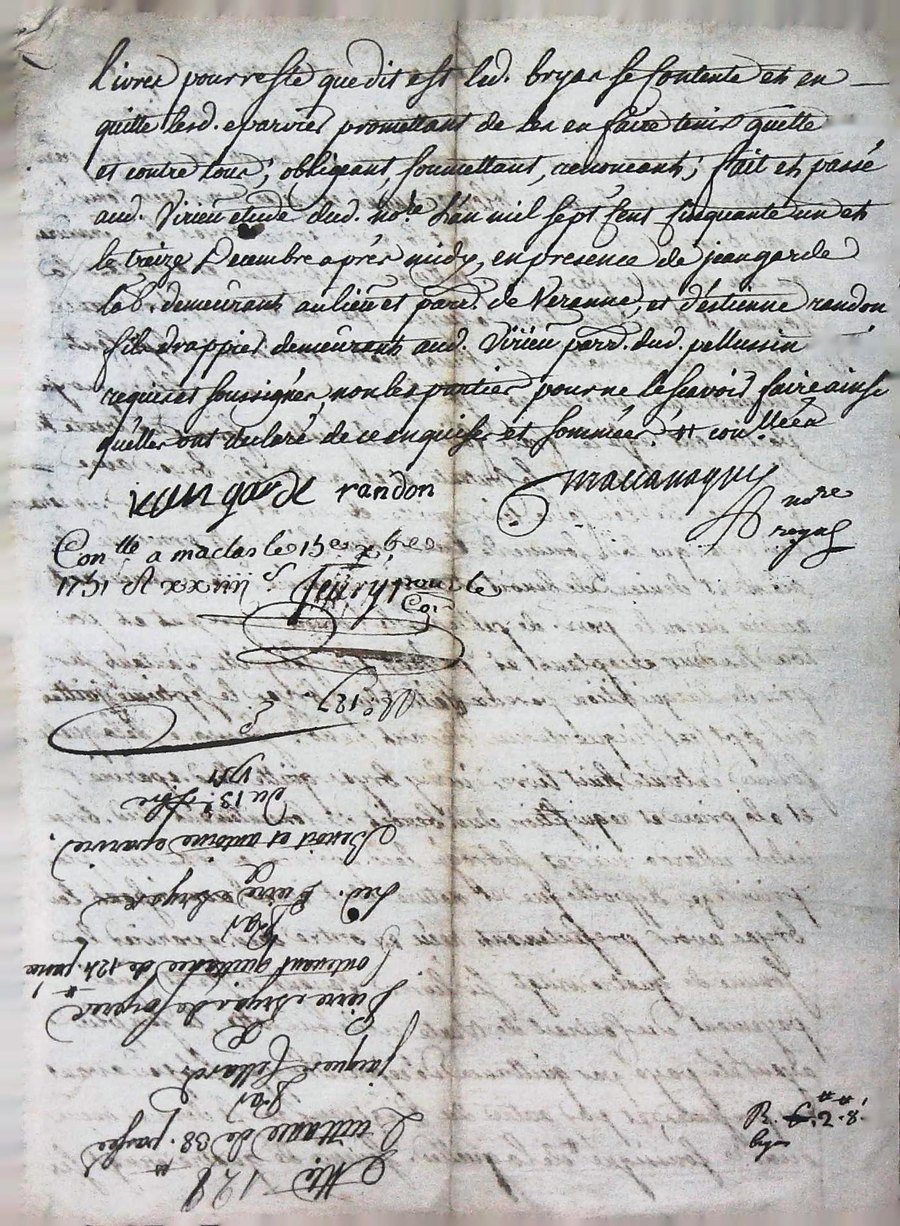 Livres pour reste que dit est led. bryas se Contente et en
quitte lesd. eparvier promettant de les en faire tenir quitte
et contre tous; obligeant, soumettant, renonceant; fait et passé
aud. Virieu etude dud. no.re L'an mil sept Cent Cinquante un et
le treize Decembre après midy, en presence de jean garde
lab. demeurant au lieu et parr. de Veranne, et d'estienne randon
fils drappier demeurant aud. Virieu parr. dud. pellussin
requis et soussignés, non les parties pour ne le scavoir faire ainsi
qu'elles ont declaré de ce enquises et sommées. con.llée a
jean garde randon
no.re
royal
Con.lle a maclas le 15e xbre
1751 R xxiiii s
pour le
N.o 127
du 13e xbre
1751
Benoit et antoine eparvier.
Led. Pierre bryas
Par
Contenant quittance de 12
Pierre bryas de
&
Jacques
Par
Quittance de 38. passée
128
R. 2. 8